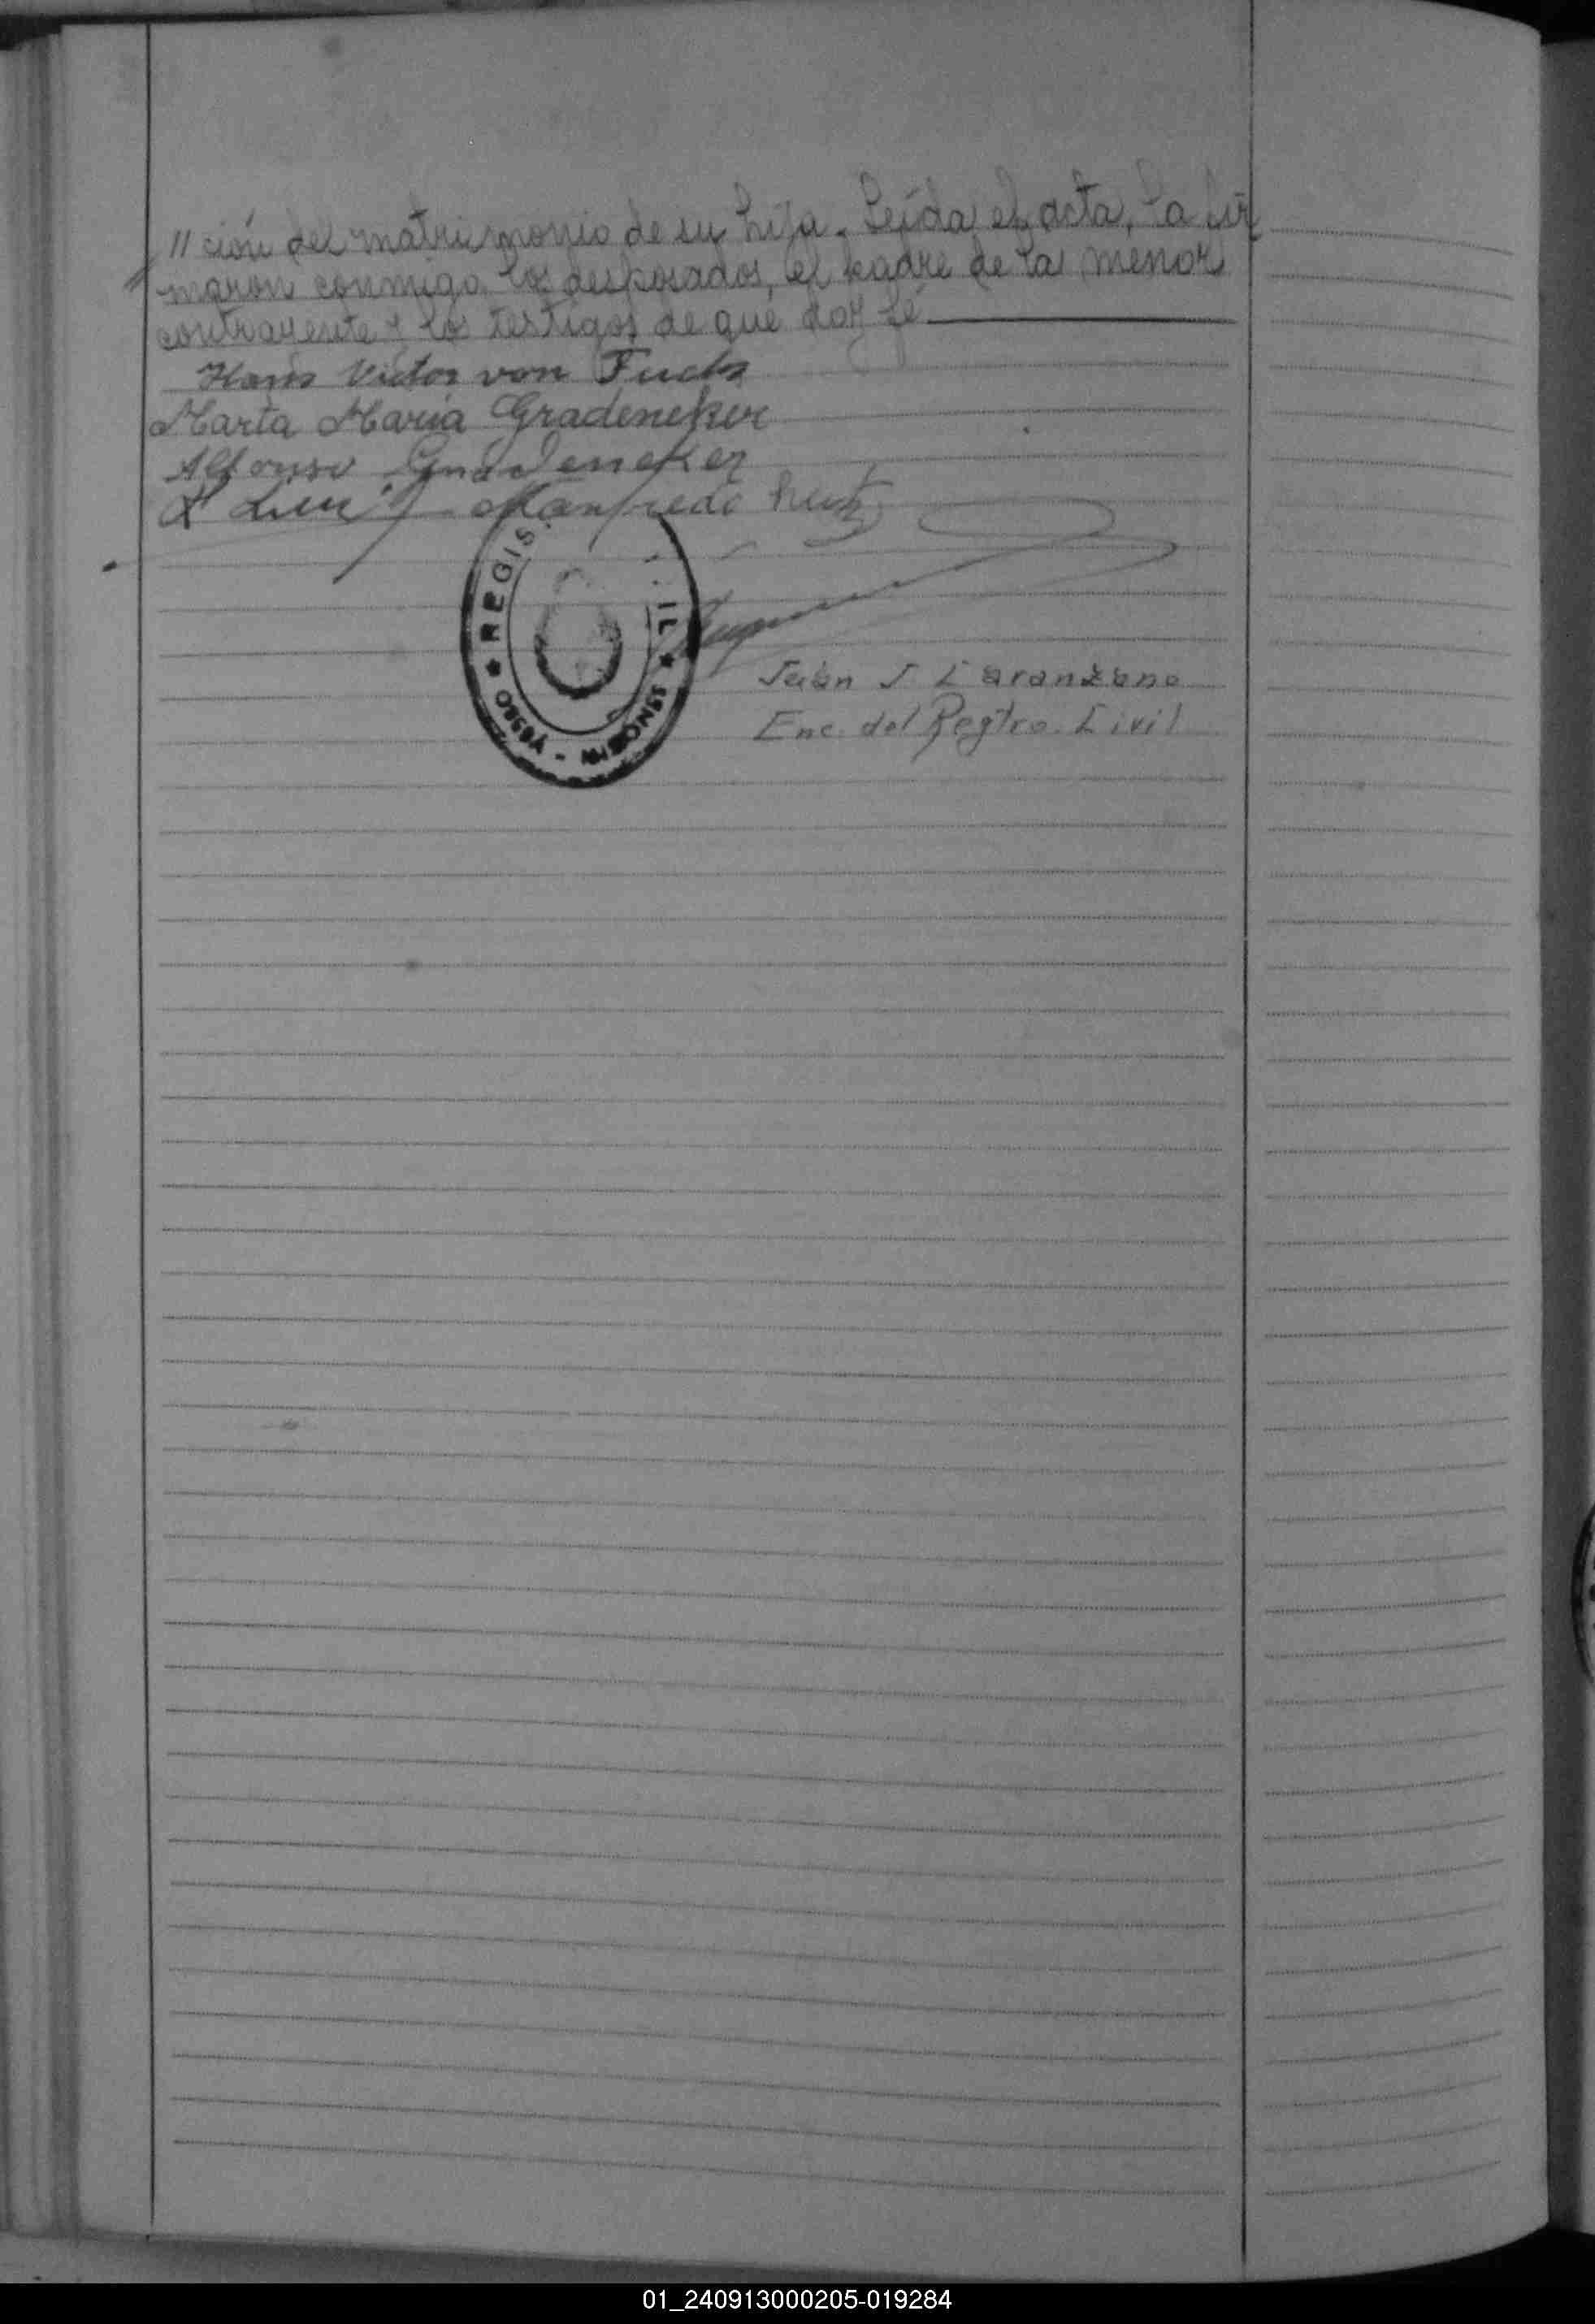 // ción del matrimonio de su hija. Leída el acta, la fir
maron conmigo los desposados, el padre de la menor
contrayente y los testigos de que doy fé
Hans Victor von Fuchs
Marta Maria Gradeneker
Alfonso Gnadeneker
Manfredo
REGIS IL
Juan J Caranzano
Enc. del Regtro. Civil
01_240913000205-019284